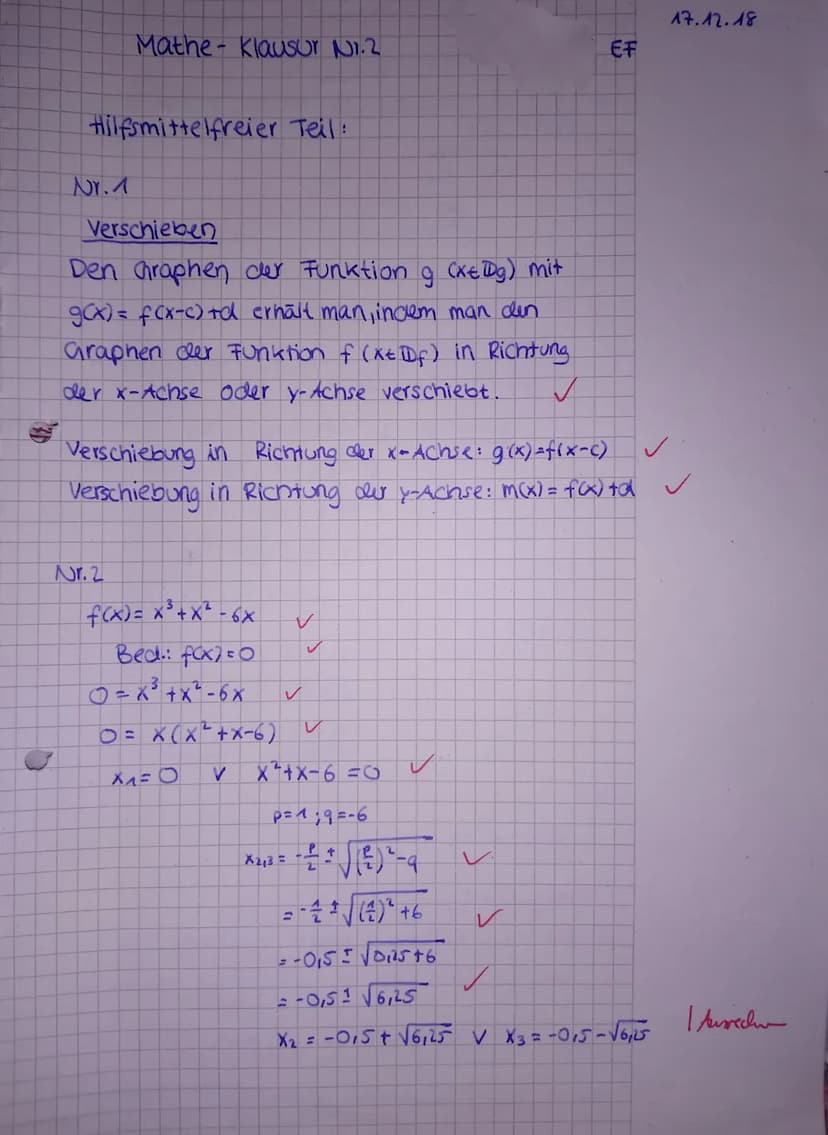 17.12.18
Mathe-Klausur Nr.2 EF
Hilfsmittelfreier Teil:
Nr.1
Verschieben
Den Graphen der Funktion g (x∈Dg) mit
g(x)= f(x-c)+d erhält man, indem man den
Graphen der Funktion f (x∈Df) in Richtung
der x-Achse oder y-Achse verschiebt. ✓
Verschiebung in Richtung der x-Achse: g(x)=f(x-c) ✓
Verschiebung in Richtung der y-Achse: m(x)= f(x)+d ✓
Nr.2
f(x)= x³+x²-6x ✓
Bed.: f(x)=0 ✓
0=x³+x²-6x ✓
0= x(x²+x-6) ✓
x₁=0 ∨ x²+x-6=0 ✓
p=1;q=-6
x₂,₃= -p/2 ± √((p/2)²-q) ✓
= -1/2 ± √((1/2)²+6) ✓
= -0,5 ± √(0,25+6)
= -0,5 ± √6,25 ✓
x₂ = -0,5+√6,25 ∨ x₃ = -0,5-√6,25